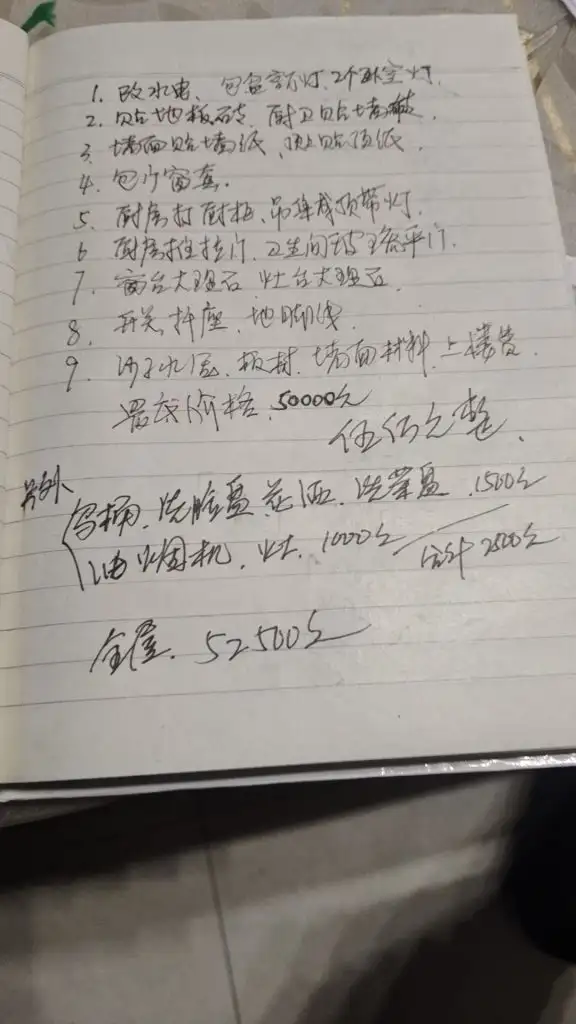 1. 改水电、包客厅灯、2个卧室灯.
2. 贴地板砖、厨卫贴墙砖.
3. 墙面贴墙纸、顶上贴顶纸.
4. 包门窗套.
5. 厨房打厨柜、吊集成顶带灯.
6 厨房推拉门、卫生间玻璃平门.
7. 窗台大理石 灶台大理石.
8. 开关,插座、地脚线.
9. 沙子水泥、板材、墙面材料、上楼费.
最低价格、50000元
伍 元整.
另外
马桶、洗脸盆 花洒、洗菜盆、1500元
油烟机、灶、1000元
合计2500元
全屋、52500元